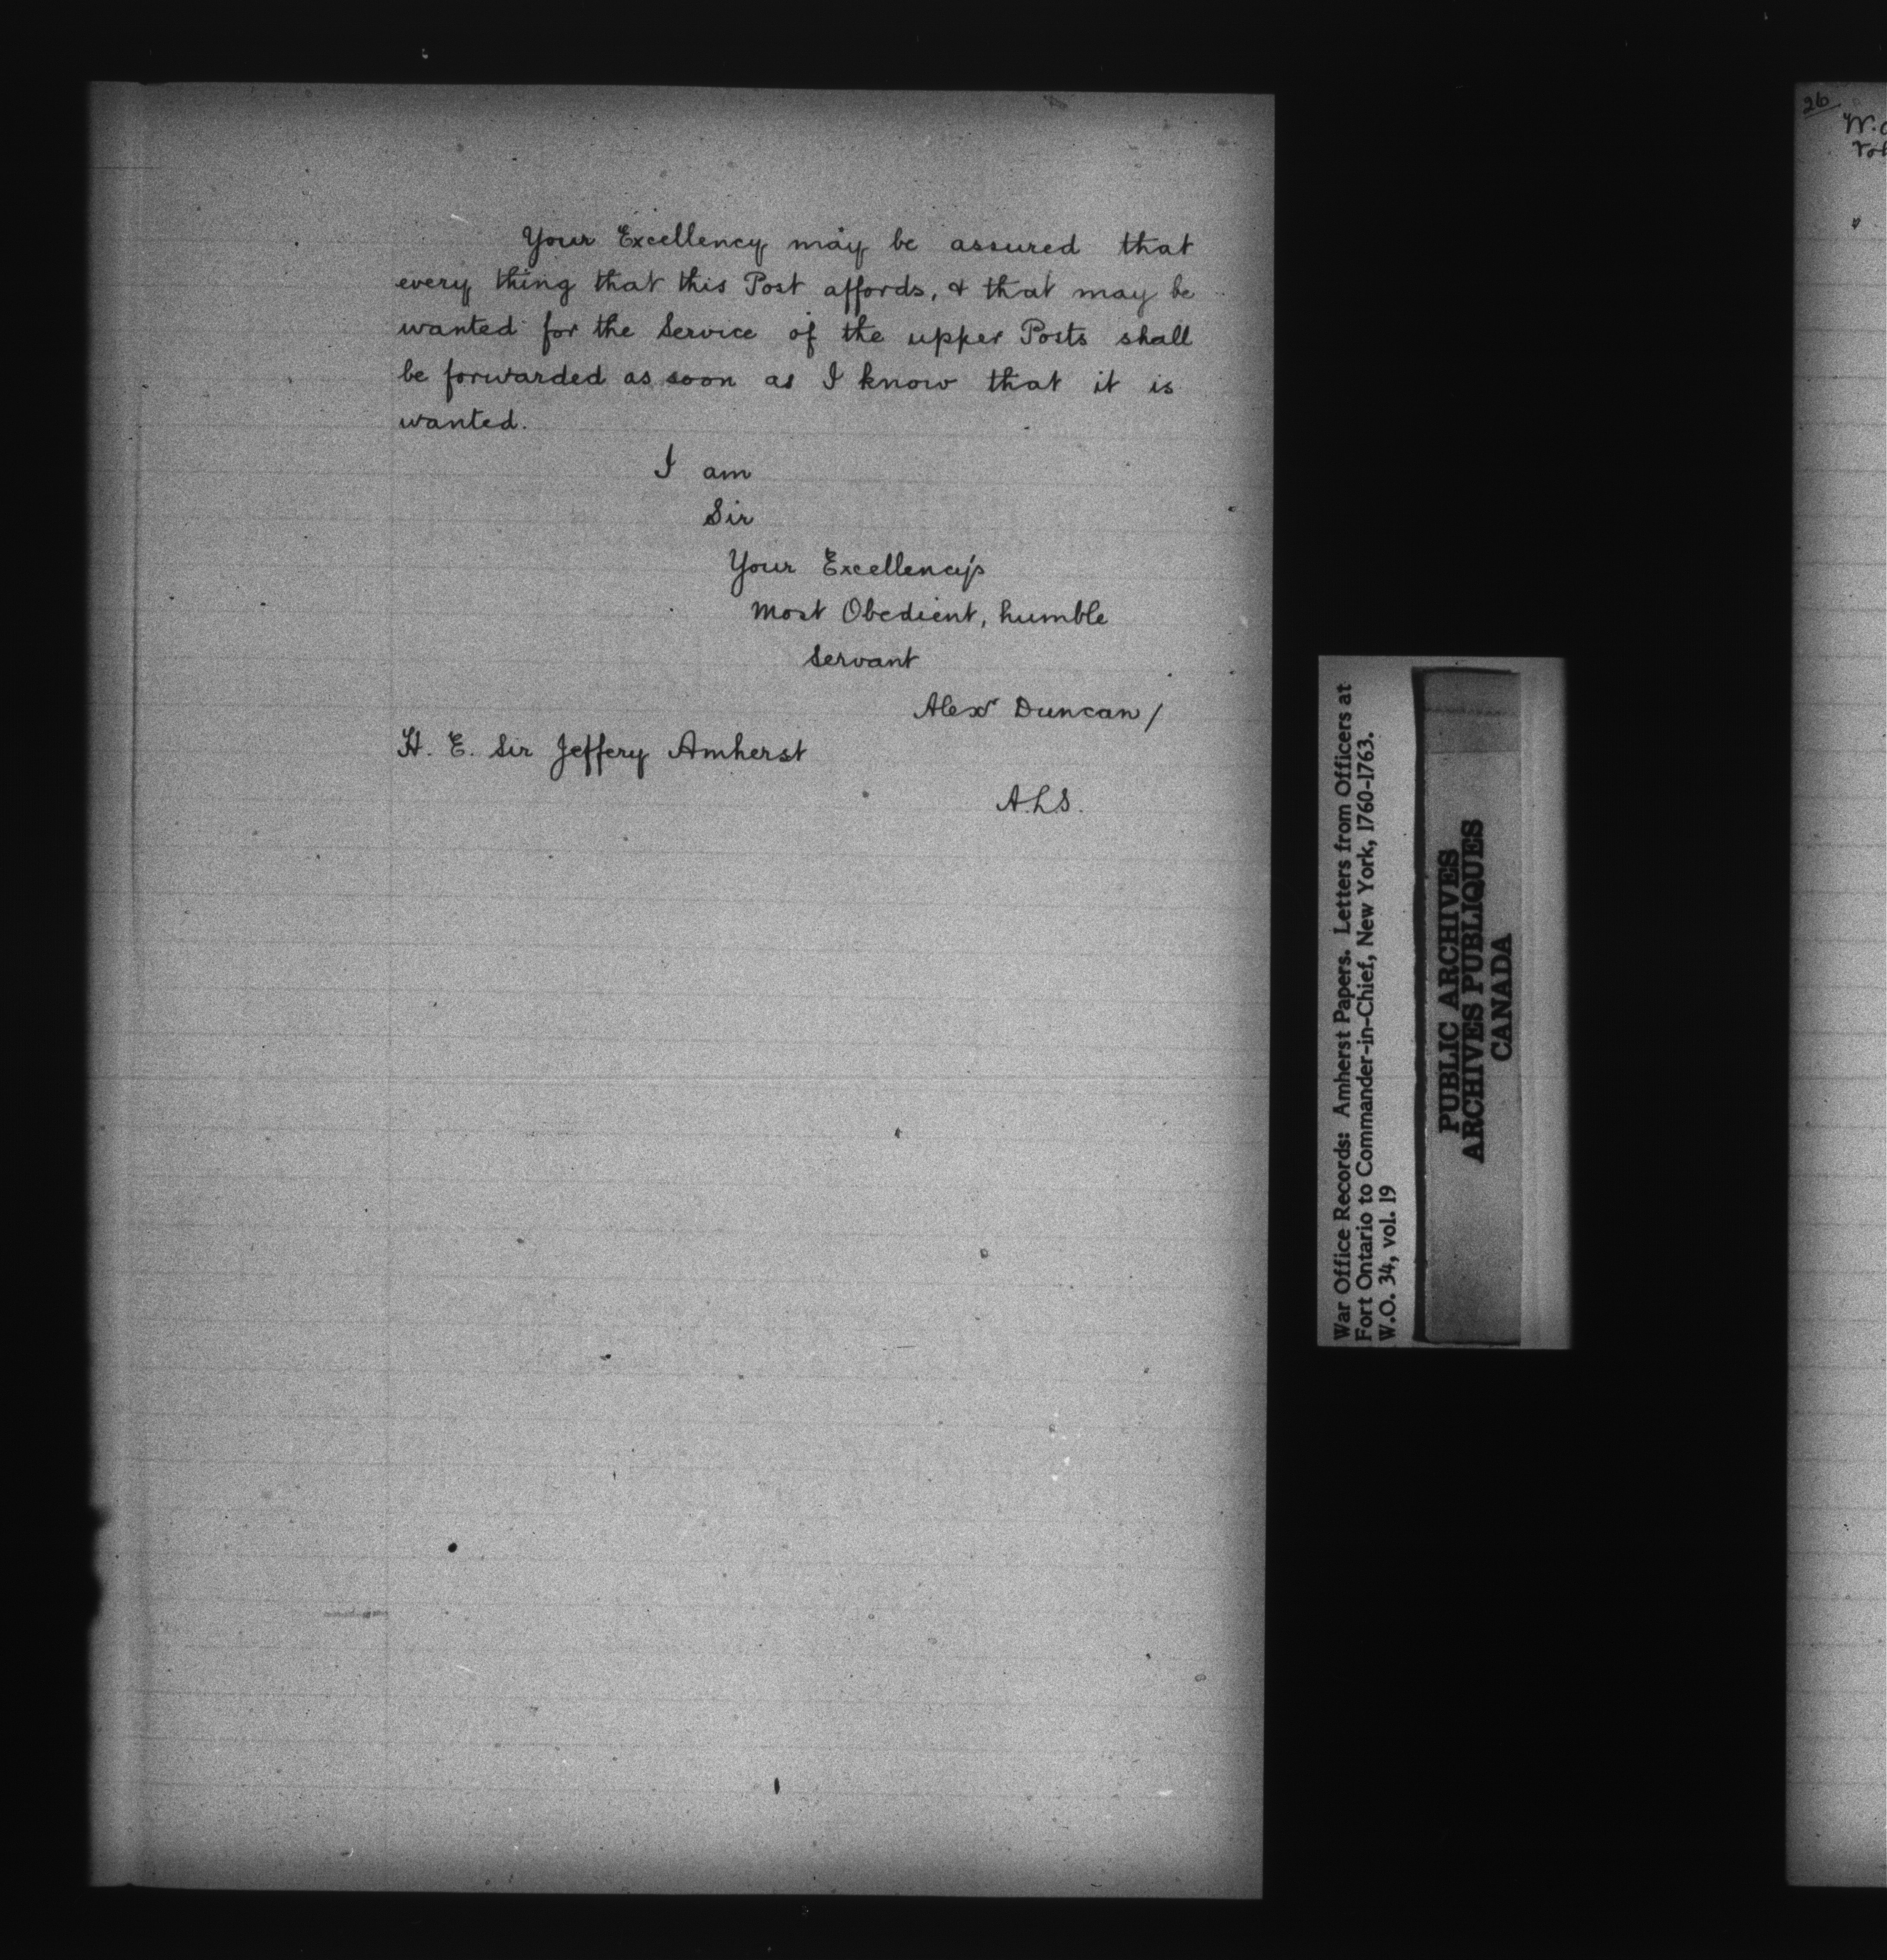 Your Excellency may be assured that
every thing that this Post affords, & that may be
wanted for the Service of the upper Posts shall
be forwarded as soon as I know that it is
wanted.
I am
Sir
Your Excellency's
Most Obedient, humble
Servant
Alexr Duncan /
H. E. Sir Jeffery Amherst
A.L.S.
War Office Records: Amherst Papers. Letters from Officers at
Fort Ontario to Commander-in-Chief, New York, 1760-1763.
W.O. 34, vol. 19
PUBLIC ARCHIVES
ARCHIVES PUBLIQUES
CANADA
26